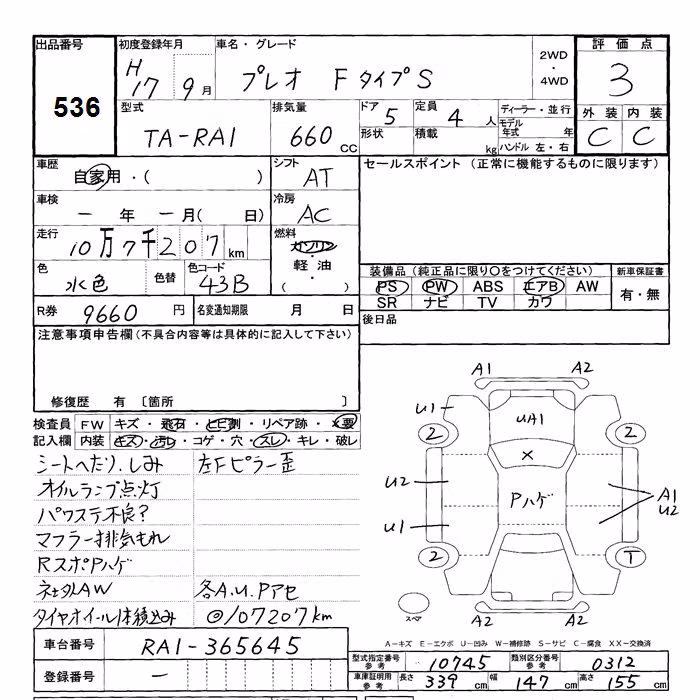 出品番号 536
初度登録年月 H 17 9月
車名・グレード プレオ FタイプS
2WD・4WD
評価点 3
型式 TA-RA1
排気量 660 CC
ドア 5
形状
定員 4 人
積載 kg
ディーラー・並行
モデル年式 年
ハンドル 左・右
外装 内装
C C
車歴 自家用・( )
シフト AT
セールスポイント (正常に機能するものに限ります)
車検 一 年 一月( 日)
冷房 AC
走行 10万7千207 km
燃料 ガソリン・軽油・( )
色 水色 色替
色コード 43B
装備品 (純正品に限り○をつけてください)
PS PW ABS エアB AW
SR ナビ TV カワ
新車保証書 有・無
R券 9660 円
名変通知期限 月 日
後日品
注意事項申告欄 (不具合内容等は具体的に記入して下さい)
修復歴 有 〔箇所 〕
検査員記入欄
FW キズ・飛石・ヒビ割・リペア跡・X要
内装 キズ・汚レ・コゲ・穴・スレ・キレ・破レ
シートへたり.しみ 左Fピラー歪
オイルランプ点灯
パワステ不良?
マフラー排気もれ
RスポPハゲ
ネセ外AW 各A.U.Pアセ
タイヤホイール1本積込み ◎107207km
A1 A2
U1 UA1
2 2
X
U2 Pハゲ A1
U2
U1
2 T
スペア
A2 A2
A-キズ E-エクボ U-凹み W-補修跡 S-サビ C-腐食 XX-交換済
車台番号 RA1-365645
登録番号 一
型式指定番号 参考 10745 類別区分番号 参考 0312
車庫証明用 参考 長さ 339 cm 幅 147 cm 高さ 155 cm